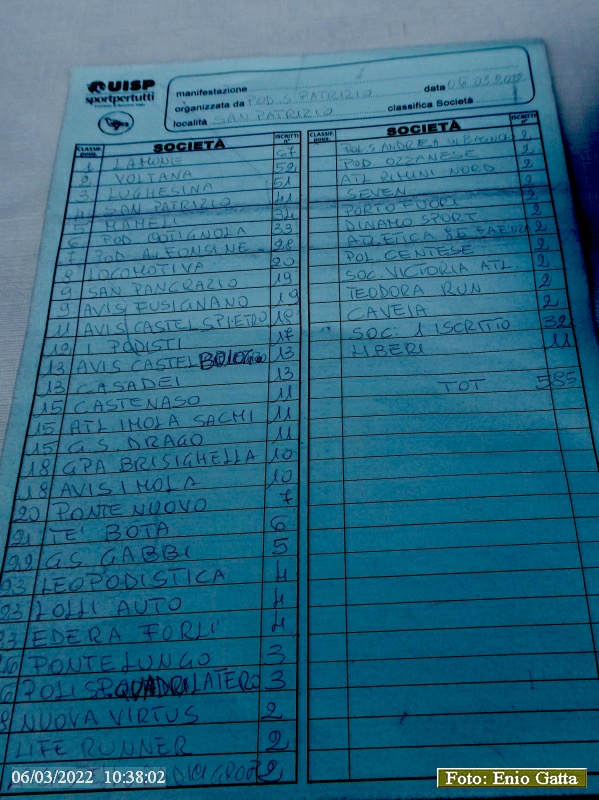 UISP
sportpertutti
manifestazione
data 06.03.2022
organizzata da POD. S. PATRIZIO
classifica Società
località SAN PATRIZIO
CLASSIF. SOCIETÀ ISCRITTI n°
1 LAMONE 67
2 VOLTANA 52
3 LUGHESINA 51
4 SAN PATRIZIO 41
5 MAMELI 34
6 POD COTIGNOLA 33
7 POD ALFONSINE 28
8 LOCOMOTIVA 20
9 SAN PANCRAZIO 19
9 AVIS FUSIGNANO 19
11 AVIS CASTEL S PIETRO 18
12 I PODISTI 17
13 AVIS CASTEL BOLOGN 13
13 CASADEI 13
15 CASTENASO 11
15 ATL IMOLA SACMI 11
15 G.S. DRAGO 11
18 GPA BRISIGHELLA 10
18 AVIS IMOLA 10
20 PONTE NUOVO 7
21 TE' BOTA 6
22 G.S. GABBI 5
23 LEOPODISTICA 4
23 LOLLI AUTO 4
23 EDERA FORLI' 4
PONTELUNGO 3
POLISP. QUADRILATERO 3
NUOVA VIRTUS 2
LIFE RUNNER 2
2
CLASSIF. SOCIETÀ ISCRITTI n°
POL S. ANDREA 2
POD OZZANESE 2
ATL RIMINI NORD 2
SEVEN 2
PORTO FUORI 2
DINAMO SPORT 2
ATLETICA 85 FAENZA 2
POL CENTESE 2
SOC. VICTORIA ATL 2
TEODORA RUN 2
CAVEJA 2
SOC. 1 ISCRITTO 32
LIBERI 11
TOT 585
06/03/2022 10:38:02
Foto: Enio Gatta